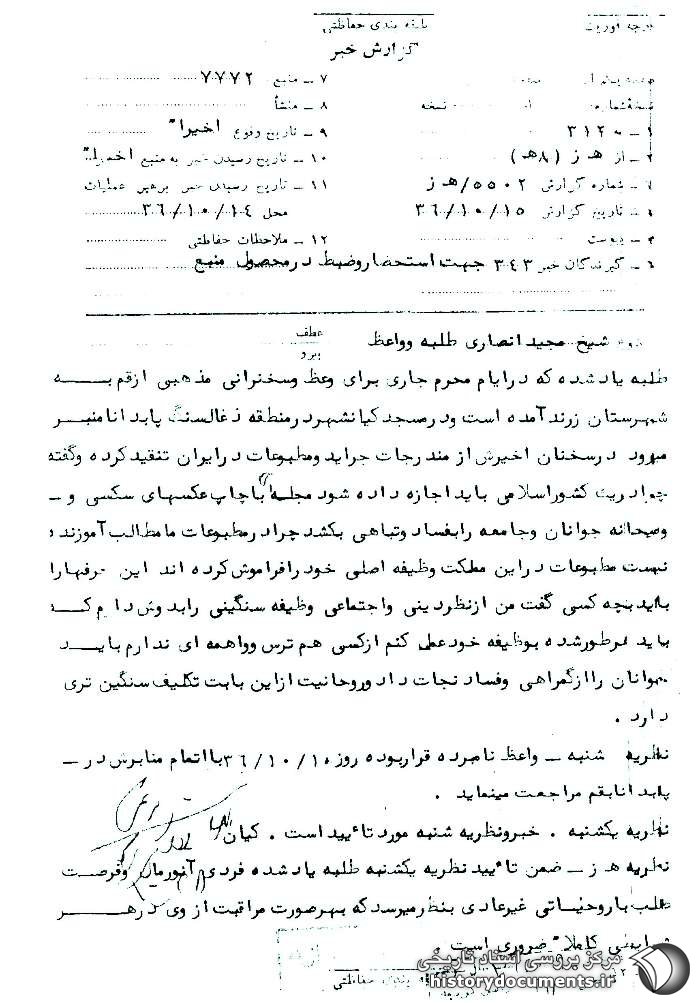 درجه فوریت
طبقه بندی حفاظتی
گزارش خبر
۷ – منبع ۷۷۷۲
نسخه شماره از نسخه
۸ – منشأ
۱ – به ۳۱۲
۹ – تاریخ وقوع اخیرا"
۲ – از هـ ز (۸هـ)
۱۰ – تاریخ رسیدن خبر به منبع اخیرا"
شماره گزارش ۵۵۰۲/هـ ز
۱۱ – تاریخ رسیدن خبر برهبر عملیات
تاریخ گزارش ۳۶/۱۰/۱۵
محل ۳۶/۱۰/۱۴
پیوست
۱۲ – ملاحظات حفاظتی
۶ – گیرندگان خبر ۳۴۳ جهت استحضار وضبط درمحصول منبع
شیخ مجید انصاری طلبه وواعظ
عطف
پیرو
طلبه یادشده که درایام محرم جاری برای وعظ وسخنرانی مذهبی ازقم بـــه
شهرستان زرند آمده است ودرمسجد کیانشهر درمنطقه ذغالسنگ پابدانا منبر
میرود درسخنان اخیرش از مندرجات جراید ومطبوعات درایران تنقید کرده وگفته
چرا دریک کشوراسلامی باید اجازه داده شود مجله ای باچاپ عکسهای سکسی و –
وقیحانه جوانان وجامعه رابفساد وتباهی بکشد چرا درمطبوعات ما مطالب آموزنده
نیست مطبوعات دراین مملکت وظیفه اصلی خود رافراموش کرده اند این حرفهارا
باید بچه کسی گفت من ازنظردینی واجتماعی وظیفه سنگینی رابدوش دارم کــه
باید هرطورشده بوظیفه خود عمل کنم ازکسی هم ترس وواهمه ای ندارم بایــد
جوانان راازگمراهی وفساد نجات داد وروحانیت ازاین بابت تکلیف سنگین تری
دارد .
نظریه شنبه – واعظ نامبرده قراربوده روز ۳۶/۱۰/۱۰ بااتمام منابرش در –
پابدانا بقم مراجعت مینماید .
نظریه یکشنبه . خبرونظریه شنبه مورد تائید است . کیان
نظریه هـ ز – ضمن تائید نظریه یکشنبه طلبه یادشده فردی وفرصت
طلب باروحیاتی غیرعادی بنظرمیرسد که بهرصورت مراقبت از وی درهـــر
شرایطی کاملا" ضروری است .
بندی حفاظتی
مرکز بررسی اسناد تاریخی
historydocuments.ir